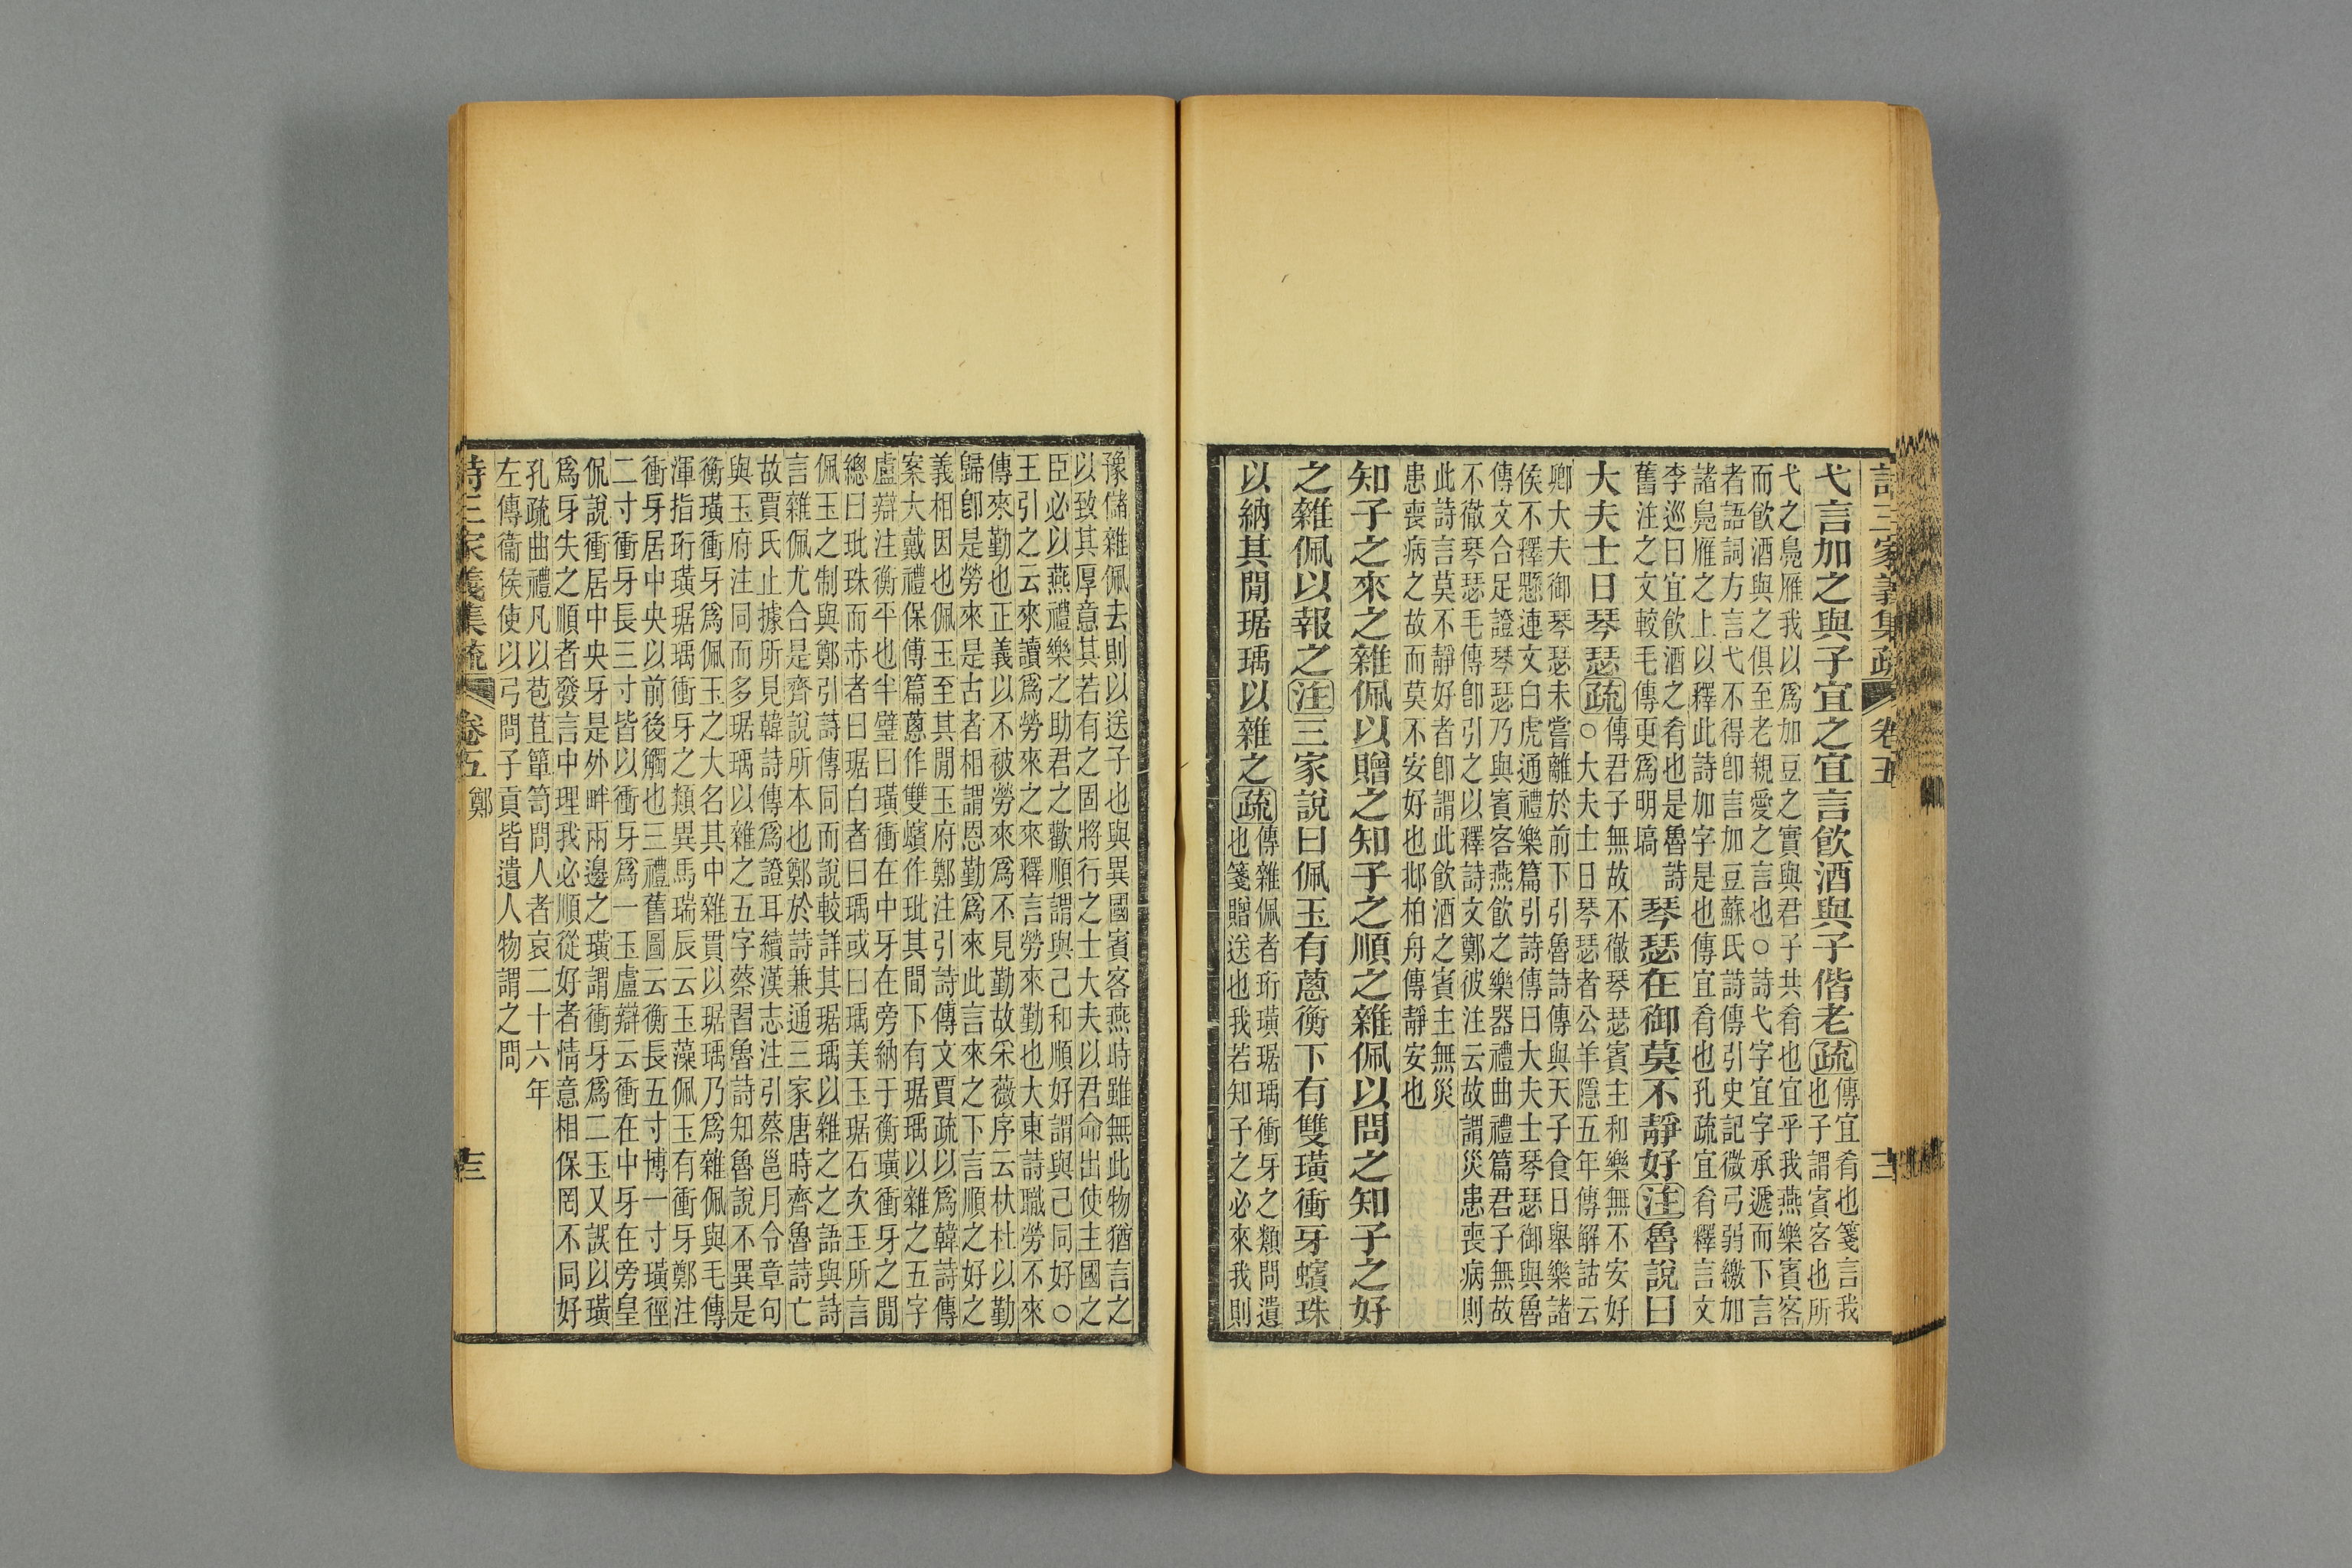 詩三家義集疏 卷五 十二
弋言加之與子宜之宜言飲酒與子偕老疏傳宜肴也箋言我
也子謂賓客也所
弋之鳧雁我以爲加豆之實與君子共肴也宜乎我燕樂賓客
而飲酒與之俱至老親愛之言也○詩弋字宜字承遞而下言
者語詞方言弋不得卽言加豆蘇氏詩傳引史記微弓弱繳加
諸鳧雁之上以釋此詩加字是也傳宜肴也孔疏宜肴釋言文
李巡曰宜飲酒之肴也是魯詩
舊注之文較毛傳更爲明塙
琴瑟在御莫不靜好注魯說曰
大夫士日琴瑟疏傳君子無故不徹琴瑟賓主和樂無不安好
○大夫士日琴瑟者公羊隱五年傳解詁云
卿大夫御琴瑟未嘗離於前下引魯詩傳與天子食日舉樂諸
侯不釋懸連文白虎通禮樂篇引詩傳曰大夫士琴瑟御與魯
傳文合足證琴瑟乃與賓客燕飲之樂器禮曲禮篇君子無故
不徹琴瑟毛傳卽引之以釋詩文鄭彼注云故謂災患喪病則
此詩言莫不靜好者卽謂此飲酒之賓主無災
患喪病之故而莫不安好也邶柏舟傳靜安也
知子之來之雜佩以贈之知子之順之雜佩以問之知子之好
之雜佩以報之注三家說曰佩玉有蔥衡下有雙璜衝牙蠙珠
以納其閒琚瑀以雜之疏傳雜佩者珩璜琚瑀衝牙之類問遺
也箋贈送也我若知子之必來我則
豫儲雜佩去則以送子也與異國賓客燕時雖無此物猶言之
以致其厚意其若有之固將行之士大夫以君命出使主國之
臣必以燕禮樂之助君之歡順謂與己和順好謂與己同好○
王引之云來讀爲勞來之來釋言勞來勤也大東詩職勞不來
傳來勤也正義以不被勞來爲不見勤故采薇序云杕杜以勤
歸卽是勞來是古者相謂恩勤爲來此言來之下言順之好之
義相因也佩玉至其閒玉府鄭注引詩傳文賈疏以爲韓詩傳
案大戴禮保傅篇蔥作雙蠙作玭其間下有琚瑀以雜之五字
盧辯注衡平也半璧曰璜衝在中牙在旁納于衡璜衝牙之閒
總曰玭珠而赤者曰琚白者曰瑀或曰瑀美玉琚石次玉所言
佩玉之制與鄭引詩傳同而說較詳其琚瑀以雜之之語與詩
言雜佩尤合是齊說所本也鄭於詩兼通三家唐時齊魯詩亡
故賈氏止據所見韓詩傳爲證耳續漢志注引蔡邕月令章句
與玉府注同而多琚瑀以雜之五字蔡習魯詩知魯說不異是
衡璜衝牙爲佩玉之大名其中雜貫以琚瑀乃爲雜佩與毛傳
渾指珩璜琚瑀衝牙之類異馬瑞辰云玉藻佩玉有衝牙鄭注
衝牙居中央以前後觸也三禮舊圖云衡長五寸博一寸璜徑
二寸衝牙長三寸皆以衝牙爲一玉盧辯云衝在中牙在旁皇
侃說衝居中央牙是外畔兩邊之璜謂衝牙爲二玉又誤以璜
爲牙失之順者發言中理我必順從好者情意相保罔不同好
孔疏曲禮凡以苞苴簞笥問人者哀二十六年
左傳衞侯使以弓問子貢皆遺人物謂之問
詩三家義集疏 卷五 鄭 十三